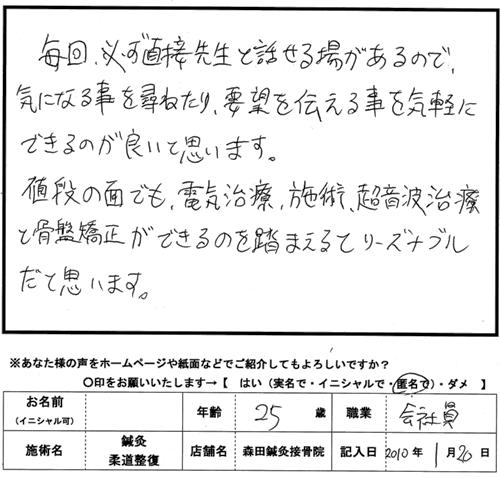 毎回、必ず直接先生と話せる場があるので、
気になる事を尋ねたり、要望を伝える事を気軽に
できるのが良いと思います。
値段の面でも、電気治療、施術、超音波治療
と骨盤矯正ができるのを踏まえるとリーズナブル
だと思います。
※あなた様の声をホームページや紙面などでご紹介してもよろしいですか？
〇印をお願いいたします→【　はい（実名で・イニシャルで・匿名で）・ダメ　】
お名前 年齢 25 歳 職業 会社員
（イニシャル可）
施術名 鍼灸 柔道整復 店舗名 森田鍼灸接骨院 記入日 2010年 1月20日